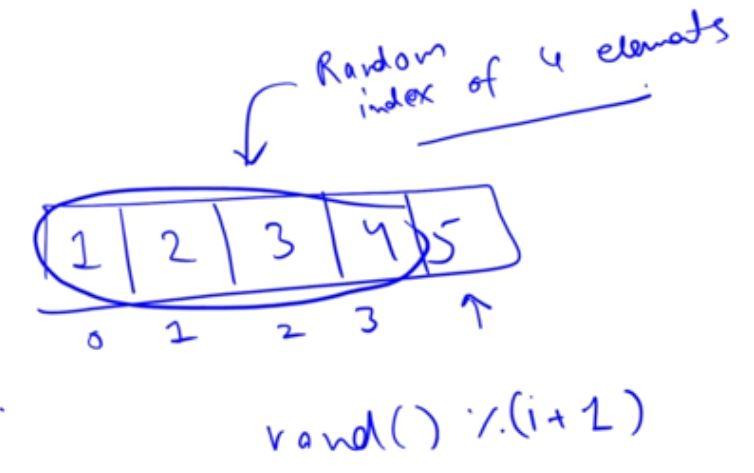 Random
index of 4 elements
1 2 3 4 5
0 1 2 3
rand() %(i+1)